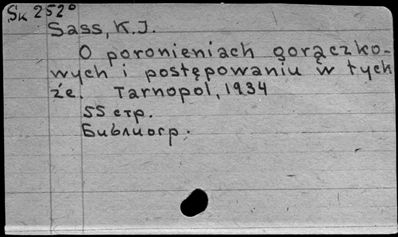 Sк 252⁰
Sass, K.J.
O poronieniach gorączko-
wych i postępowaniu w tych
że. Tarnopol, 1934
55 стр.
Библиогр.